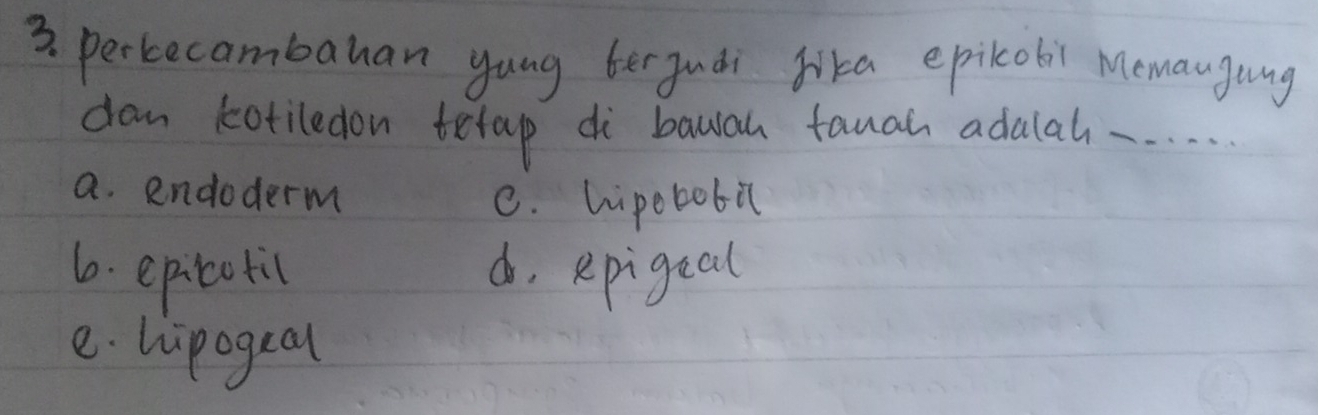 3. Perkecambahan yang terjadi jika epikotil Memanjang
dan kotiledon tetap di bawah tanah adalah .......
a. endoderm c. hipokotil
b. epikotil d. epigeal
e. hipogeal